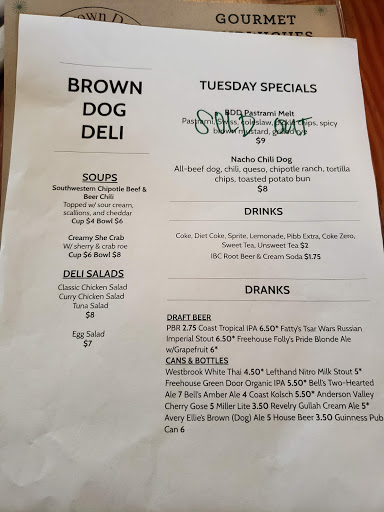 Brown D
GOURMET
BROWN
DOG
DELI
SOUPS
Southwestern Chipotle Beef &
Beer Chili
Topped w/ sour cream,
scallions, and cheddar
Cup $4 Bowl $6
Creamy She Crab
W/ sherry & crab roe
Cup $6 Bowl $8
DELI SALADS
Classic Chicken Salad
Curry Chicken Salad
Tuna Salad
$8
Egg Salad
$7
TUESDAY SPECIALS
BDD Pastrami Melt
Pastrami, Swiss, coleslaw, pickle chips, spicy
brown mustard, griddled rye
$9
SOLD OUT
Nacho Chili Dog
All-beef dog, chili, queso, chipotle ranch, tortilla
chips, toasted potato bun
$8
DRINKS
Coke, Diet Coke, Sprite, Lemonade, Pibb Extra, Coke Zero,
Sweet Tea, Unsweet Tea $2
IBC Root Beer & Cream Soda $1.75
DRANKS
DRAFT BEER
PBR 2.75 Coast Tropical IPA 6.50* Fatty's Tsar Wars Russian
Imperial Stout 6.50* Freehouse Folly's Pride Blonde Ale
w/Grapefruit 6*
CANS & BOTTLES
Westbrook White Thai 4.50* Lefthand Nitro Milk Stout 5*
Freehouse Green Door Organic IPA 5.50* Bell's Two-Hearted
Ale 7 Bell's Amber Ale 4 Coast Kolsch 5.50* Anderson Valley
Cherry Gose 5 Miller Lite 3.50 Revelry Gullah Cream Ale 5*
Avery Ellie's Brown (Dog) Ale 5 House Beer 3.50 Guinness Pub
Can 6